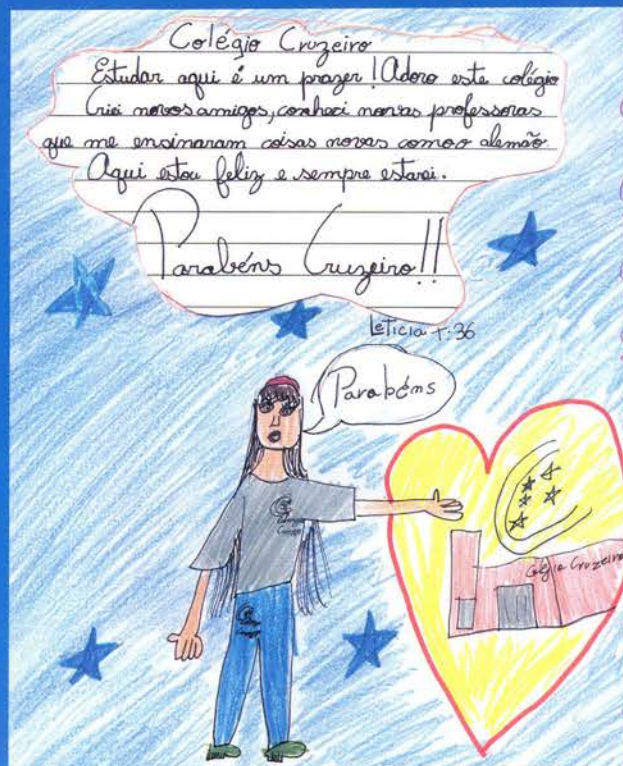 Colégio Cruzeiro
Estudar aqui é um prazer! Adoro este colégio
Criei novos amigos, conheci novas professoras
que me ensinaram coisas novas como o alemão.
Aqui estou feliz e sempre estarei.
Parabéns Cruzeiro!!
Leticia T:36
Parabéns
Colégio Cruzeiro